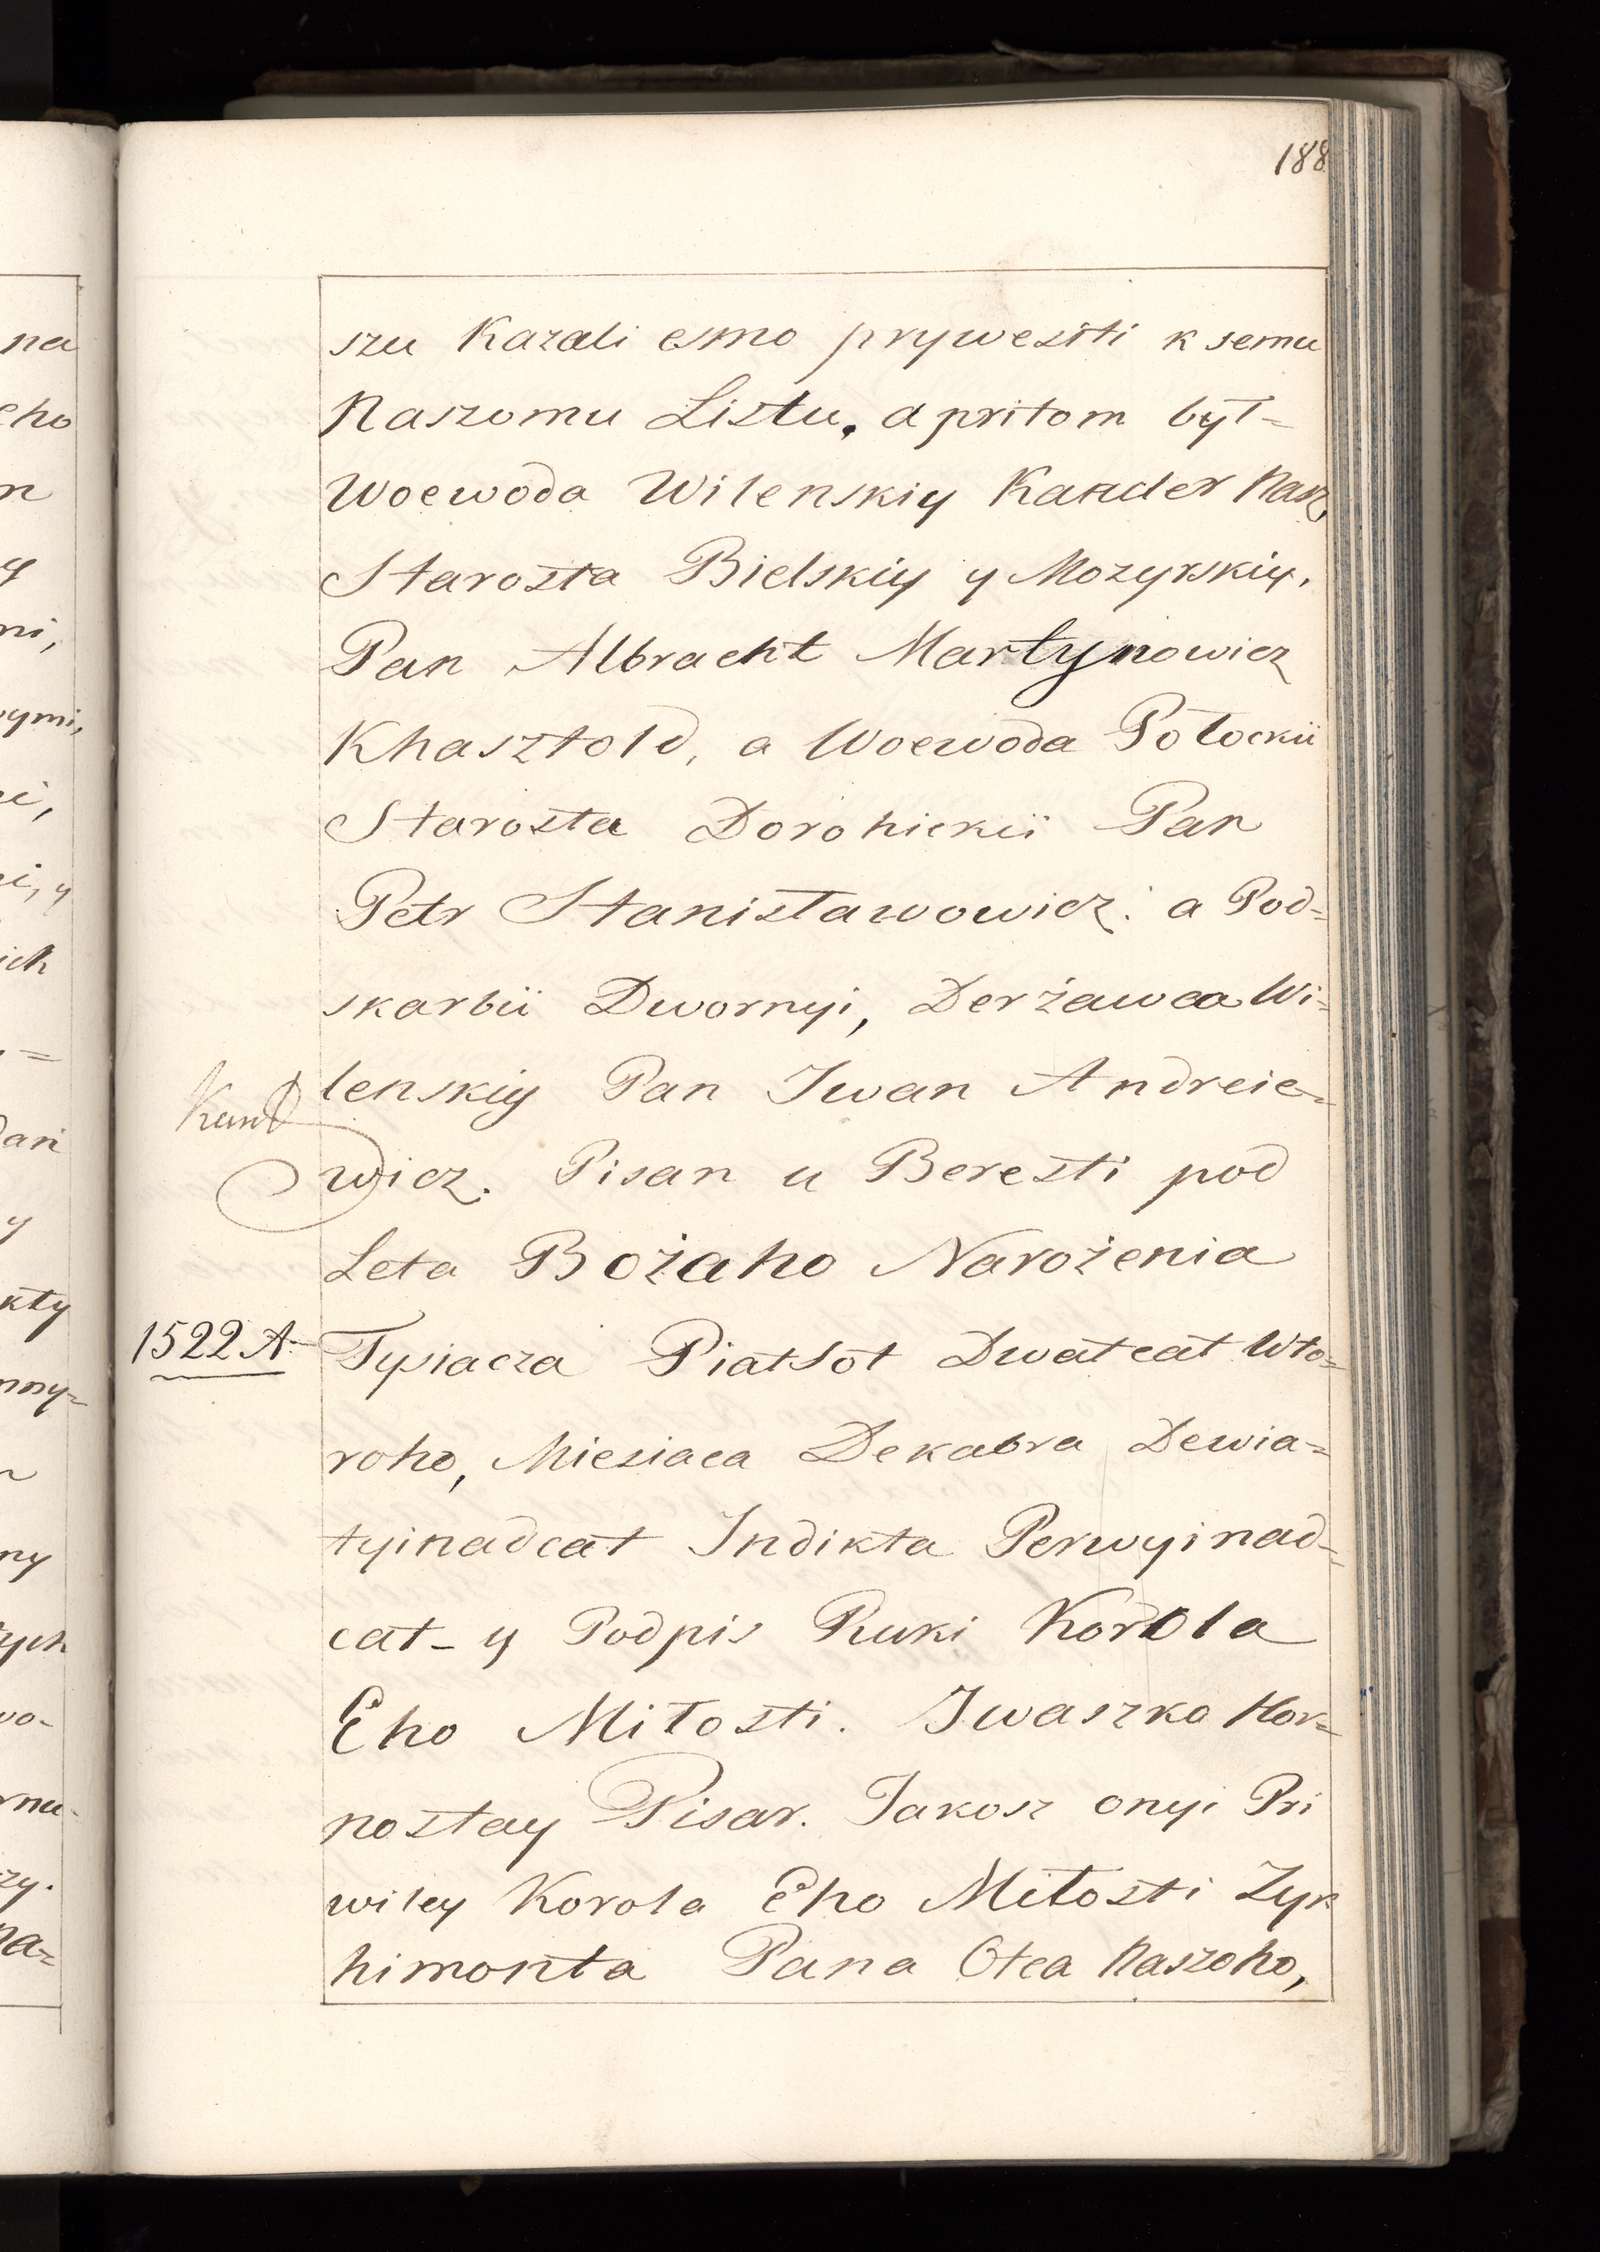 188
szu Kazali esmo prywesiti k semu
Naszomu Listu, a pritom był=
Woewoda Wilenskiy Kancler Nasz,
Starosta Bielskiy y Mozyrskiy,
Pan Albracht Martynowicz
Khasztold, a Woewoda Połockii
Starosta Dorohickii Pan
Petr Stanisławowicz: a Pod=
skarbii Dwornyi, Derżawca Wi=
lenskiy Pan Iwan Andreie=
wicz. Pisan u Beresti pod
Leta Bożaho Narożenia
1522 A. Tysiacza Piatsot Dwatcat Wto=
roho, Miesiaca Dekabra Dewia=
tyinadcat Indikta Perwyinad=
cat_ y Podpis Ruki Korola
Eho Miłosti. Iwaszko Hor=
nostay Pisar. Jakosz onyi Pri
wiley Korola Eho Miłosti Zyk
himonta Pana Otca Naszoho,
na
eho
n
y
ni,
wymi,
i,
i, y
ich
=
dan
y
kty
n
ny
tych
wo-
rnu-
zy.
Na=